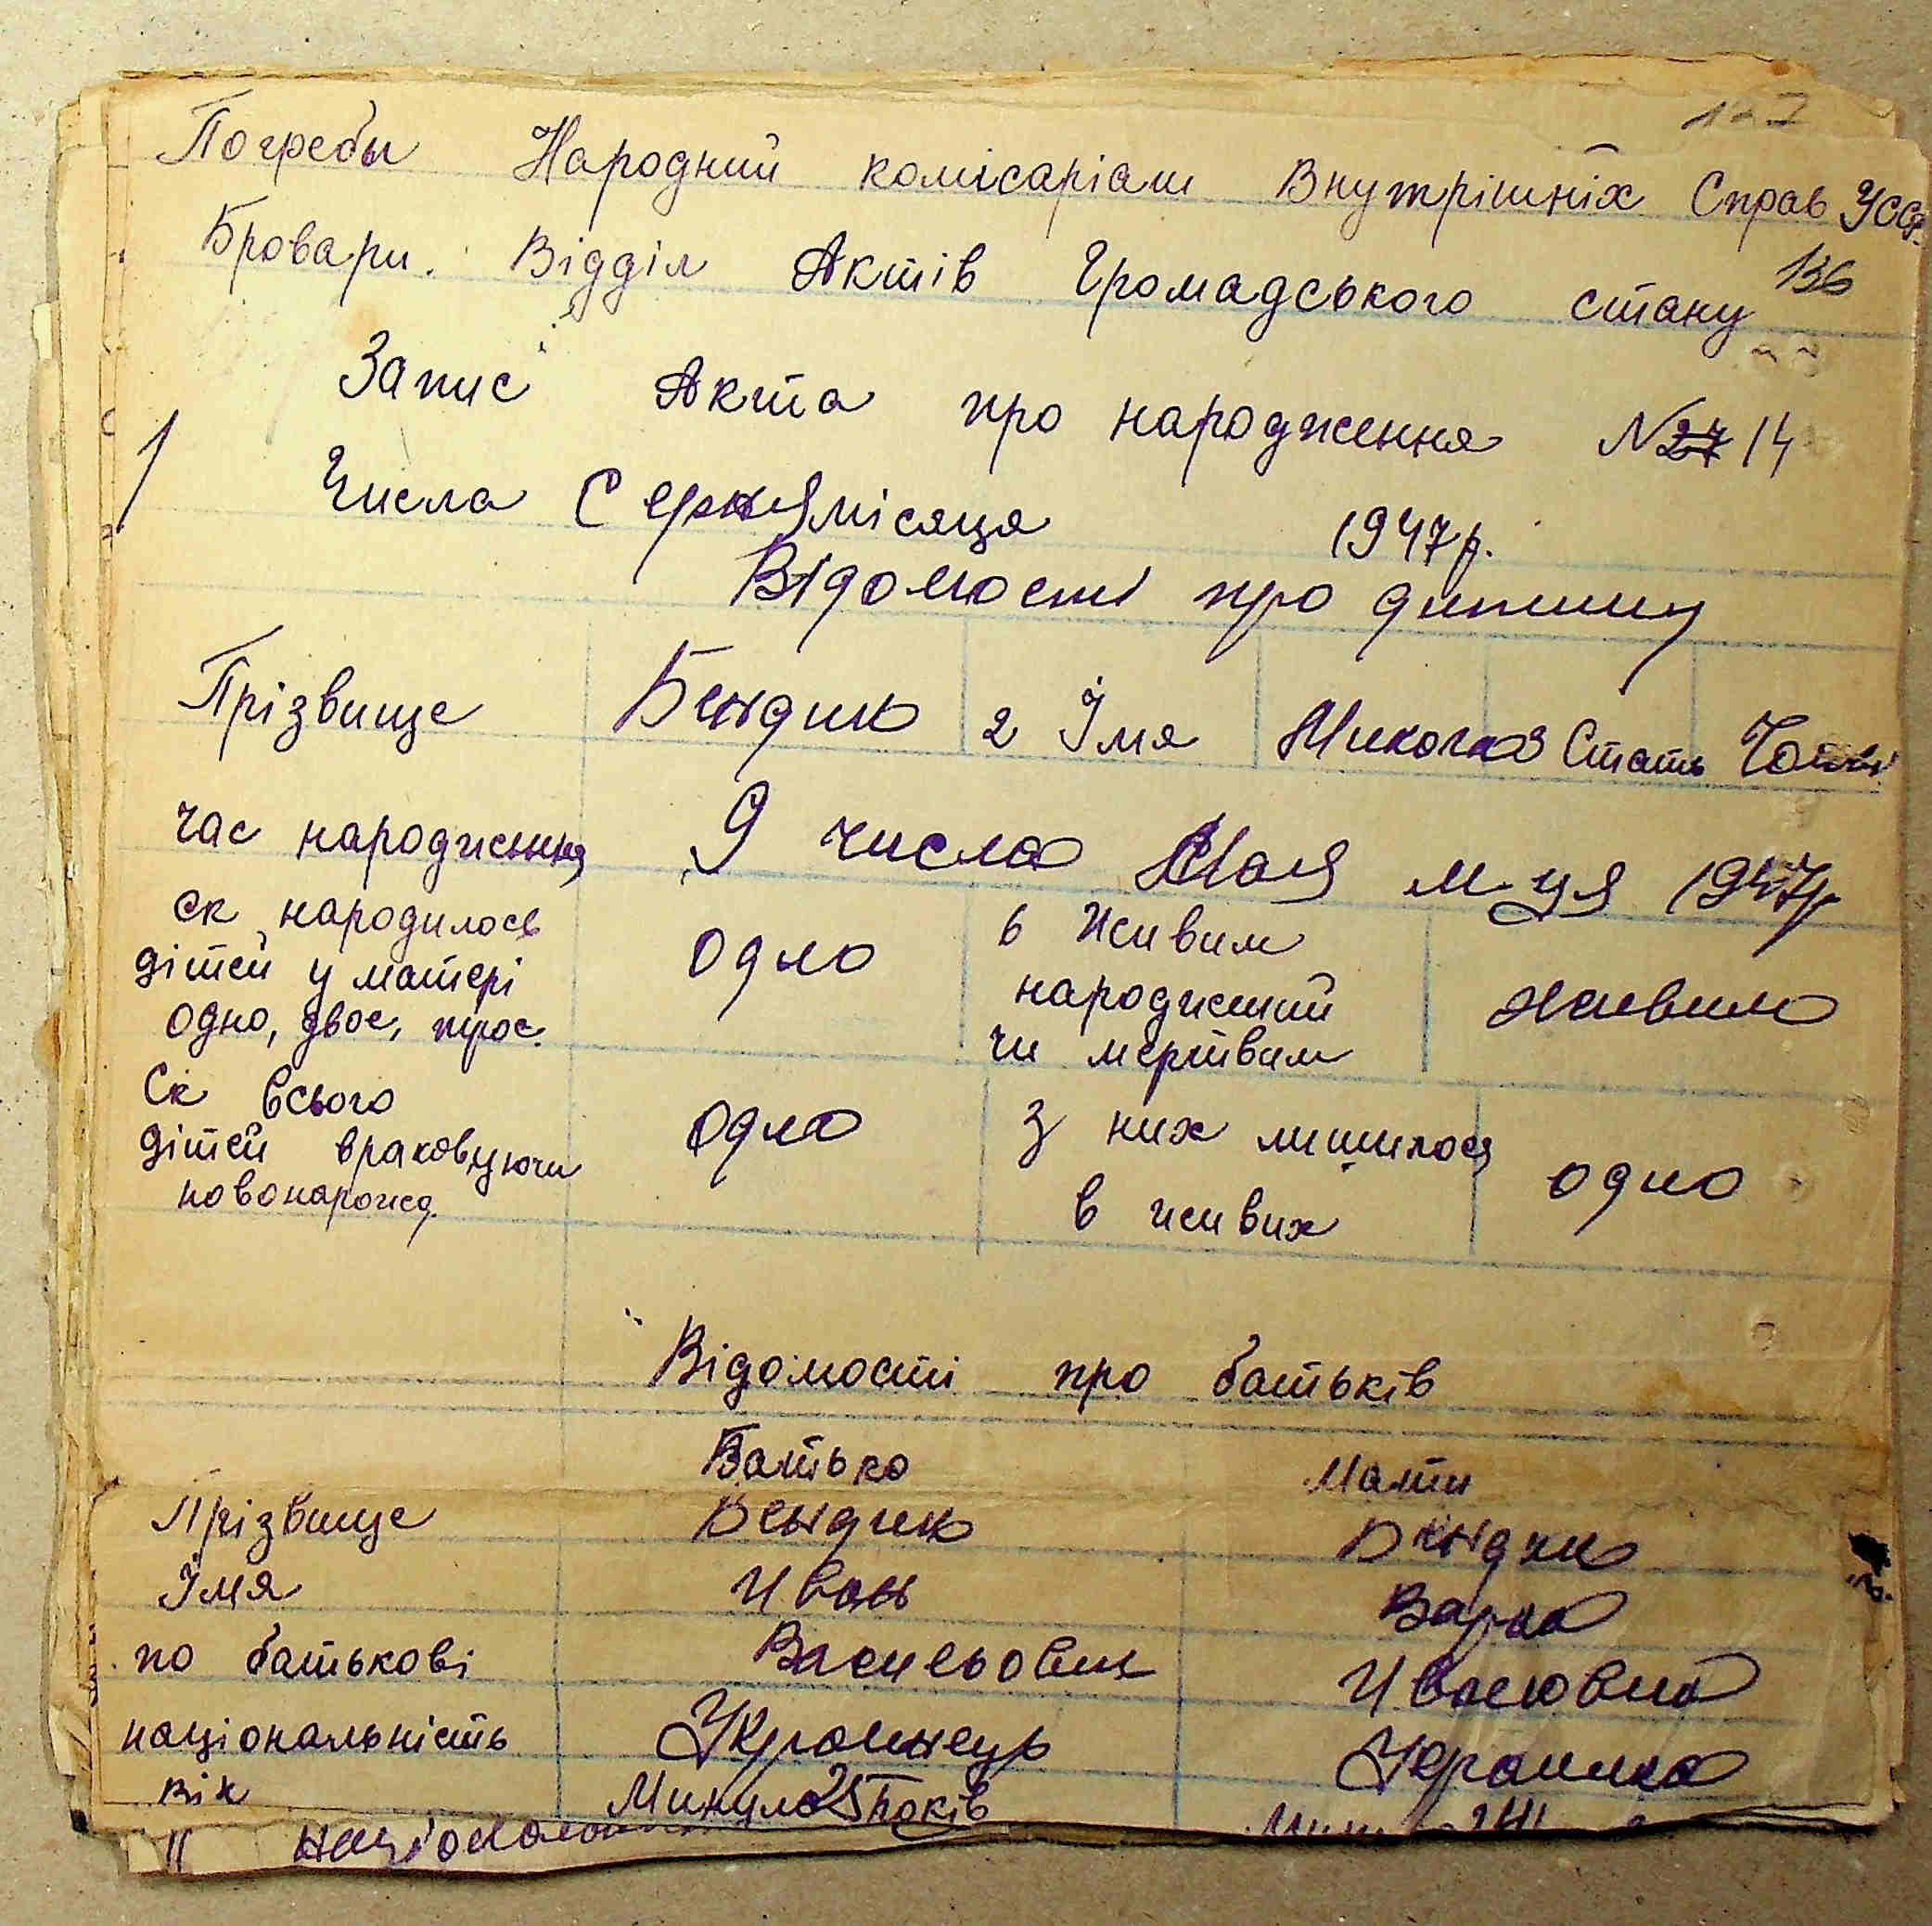 127
Погребы Народний комісаріат Внутрішніх Справ УССР.
Бровари. Відділ Актів Громадського стану 136
Запис Акта про народження N 27 14
Числа Серпня місяця 1947 р.
Відомості про дитину
Прізвище Бендик 2 Їмя Микола 3 Стать Чолов
час народження 9 числа Мая м-ця 1947р
ск народилось дітей у матері одно, двое, трое. одно 6 Живим народжений чи мертвим живим
Ск всього дітей враховуючи новонарожд. одно з них лишилося в живих одно
Відомості про батьків
Батько Мати
Прізвище Бендик Бендик
Їмя Иван Варка
по батькові Васильович Ивановна
національність Украинець Украинка
Вік Минуло 25 років